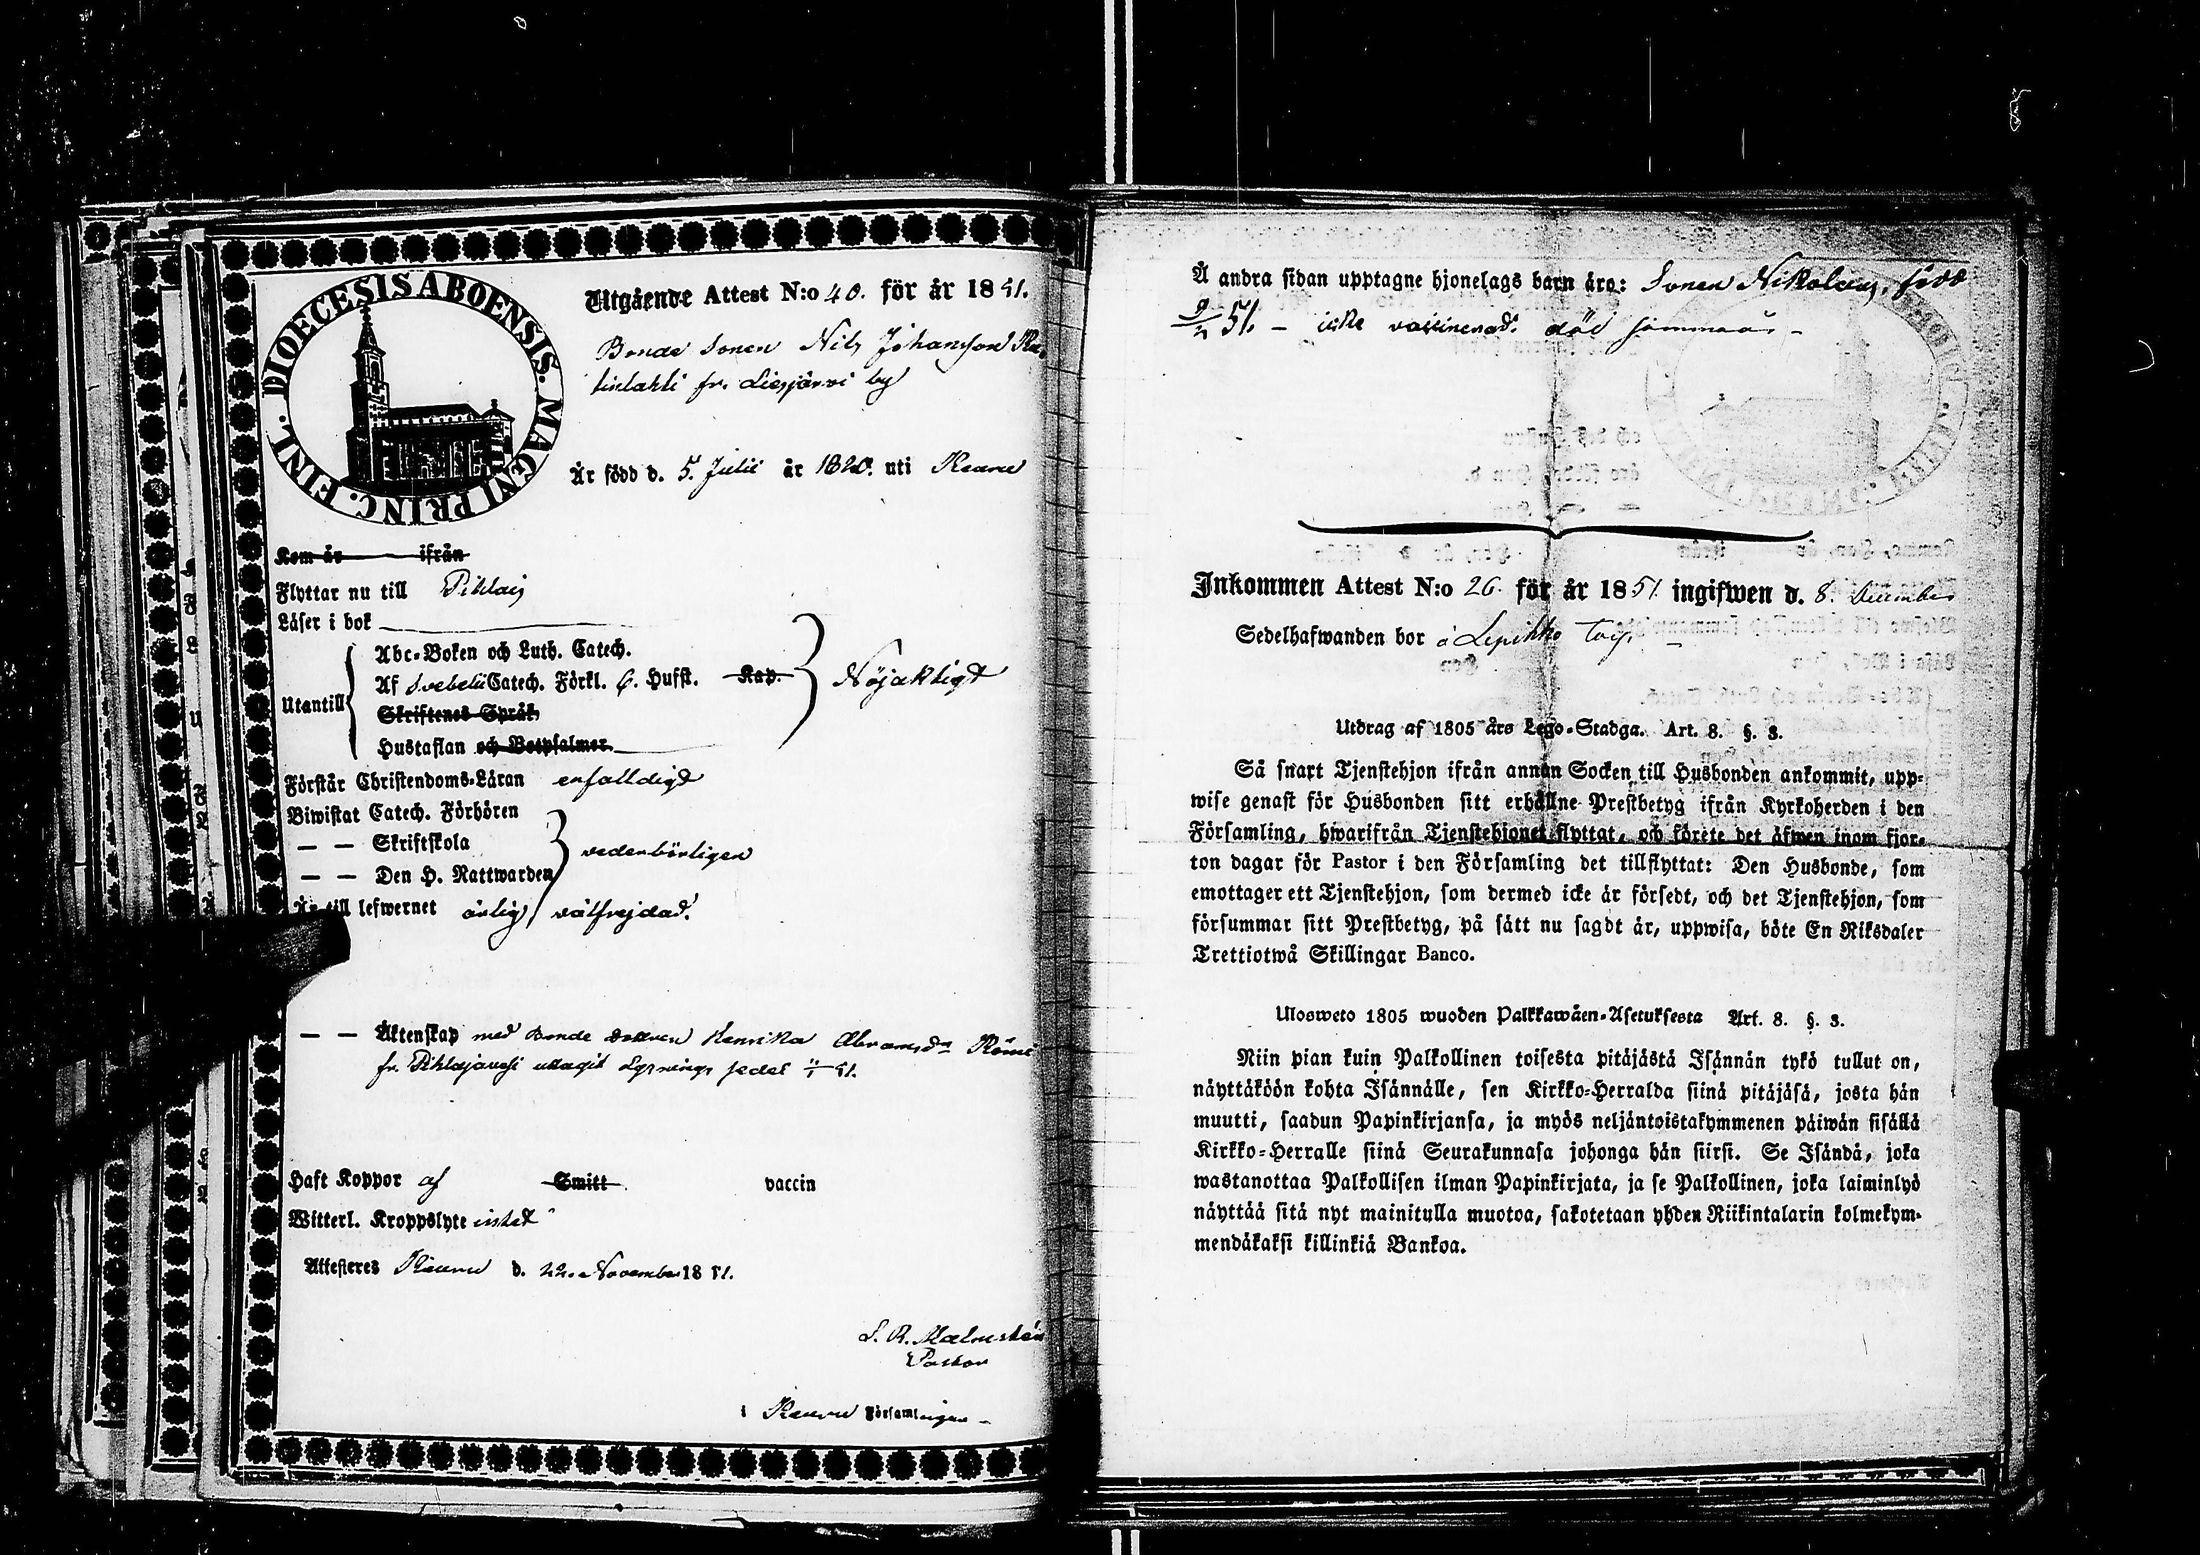 DIOECESIS ABOENSIS. MAGNI PRINC. FINL.
Utgående Attest N:o 40. för år 1851.
Bonde sonen Nils Johansson
fr. Liesjärvi by
Är född d. 5. Julii år 1820. uti Keuru
Kom år ifrån
Flyttar nu till Pihlais
Läser i bok
Utantill
Abc-Boken och Luth. Catech.
Af Svebelii Catech. Förkl. 6. Hufst. Kap. Nöjaktigt
Skriftenes Språk
Hustaflan och Botpsalmer.
Förstår Christendoms-Läran enfalldigt
Biwistat Catech. Förhören
— — Skriftskola vederbörligen
— — Den H. Nattwarden
Är till lefwernet ärlig, välfrejdad.
— — Äktenskap med Bonde dottren Henrika Abramsdr
fr. Pihlajavesi uttagit Lysnings sedel
Haft Koppor af Smitt vaccin
Witterl. Kroppslyte intet
Attesteres Keuru d. 22. November 1851.
Pastor
i Keuru Församlingen
Å andra sidan upptagne hjonelags barn äro: Sonen Nikolaus, född
9/2 51. – icke vaccinerad. död samma år –
Inkommen Attest N:o 26. för år 1851. ingifwen d. 8. December
Sedelhafwanden bor å Lepikko torp. –
Utdrag af 1805 års Lego-Stadga. Art. 8. §. 3.
Så snart Tjenstehjon ifrån annan Socken till Husbonden ankommit, upp-
wise genast för Husbonden sitt erhållne Prestbetyg ifrån Kyrkoherden i den
Församling, hwarifrån Tjenstehjonet flyttat, och förete det äfwen inom fjor-
ton dagar för Pastor i den Församling det tillflyttat: Den Husbonde, som
emottager ett Tjenstehjon, som dermed icke är försedt, och det Tjenstehjon, som
försummar sitt Prestbetyg, på sätt nu sagdt är, uppwisa, böte En Riksdaler
Trettiotwå Skillingar Banco.
Ulosweto 1805 wuoden Palkkawäen-Asetuksesta Art. 8. §. 3.
Niin pian kuin Palkollinen toisesta pitäjästä Isännän tykö tullut on,
näyttäköön kohta Isännälle, sen Kirkko-Herralda siinä pitäjäsä, josta hän
muutti, saadun Papinkirjansa, ja myös neljäntoistakymmenen päiwän sisällä
Kirkko-Herralle siinä Seurakunnasa johonga hän siirsi. Se Isändä, joka
wastanottaa Palkollisen ilman Papinkirjata, ja se Palkollinen, joka laiminlyö
näyttää sitä nyt mainitulla muotoa, sakotetaan yhden Riikintalarin kolmekym-
mendäkaksi killinkiä Bankoa.